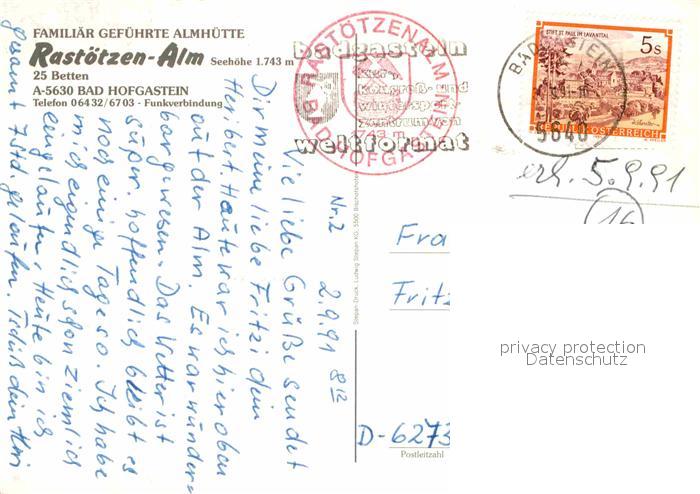 FAMILIÄR GEFÜHRTE ALMHÜTTE
Rastötzen-Alm Seehöhe 1.743 m
25 Betten
A-5630 BAD HOFGASTEIN
Telefon 06432/6703 - Funkverbindung
RASTÖTZENALM
1743 m
BAD HOFGASTEIN
badgastein
kur-,
kongreß- und
wintersport-
zentrum von
weltformat
STIFT ST. PAUL IM LAVANTTAL
5s
REPUBLIK ÖSTERREICH
BADGASTEIN
5640
erh. 5.9.91
16
Nr. 2 2.9.91 8 12
Viele liebe Grüße sendet
Dir meine liebe Fritzi dein
Heribert. Heute war ich hier oben
auf der Alm. Es war wunder-
bar gewesen. Das Wetter ist
super, hoffendlich bleibt es
noch einige Tage so. Ich habe
mich eigendlich schon ziemlich
eingelaufen, Heute bin ich
gesamt 7 Std. gelaufen. Tschüß dein Heri
Stepan Druck, Ludwig Stepan KG, 5500 Bischofshofen
Fra
Fritz
D-6273
Postleitzahl
privacy protection
Datenschutz